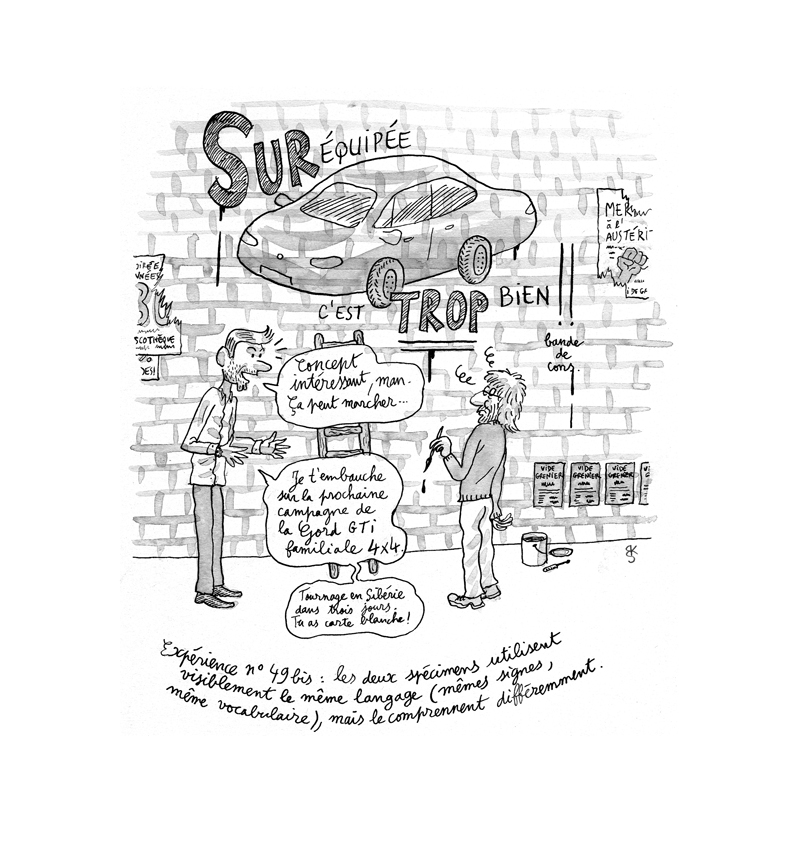 SUR ÉQUIPÉE
C'EST TROP BIEN
MER
à l'
AUSTÉRIT
bande
de
cons.
SCOTHÈQUE
Concept
intéressant, man.
Ça peut marcher...
Je t'embauche
sur la prochaine
campagne de
la Gord GTi
familiale 4x4.
Tournage en Sibérie
dans trois jours.
Tu as carte blanche!
VIDE
GRENIER
VIDE
GRENIER
VIDE
GRENIER
Expérience n° 49 bis : les deux spécimens utilisent
visiblement le même langage (mêmes signes,
même vocabulaire), mais le comprennent différemment.